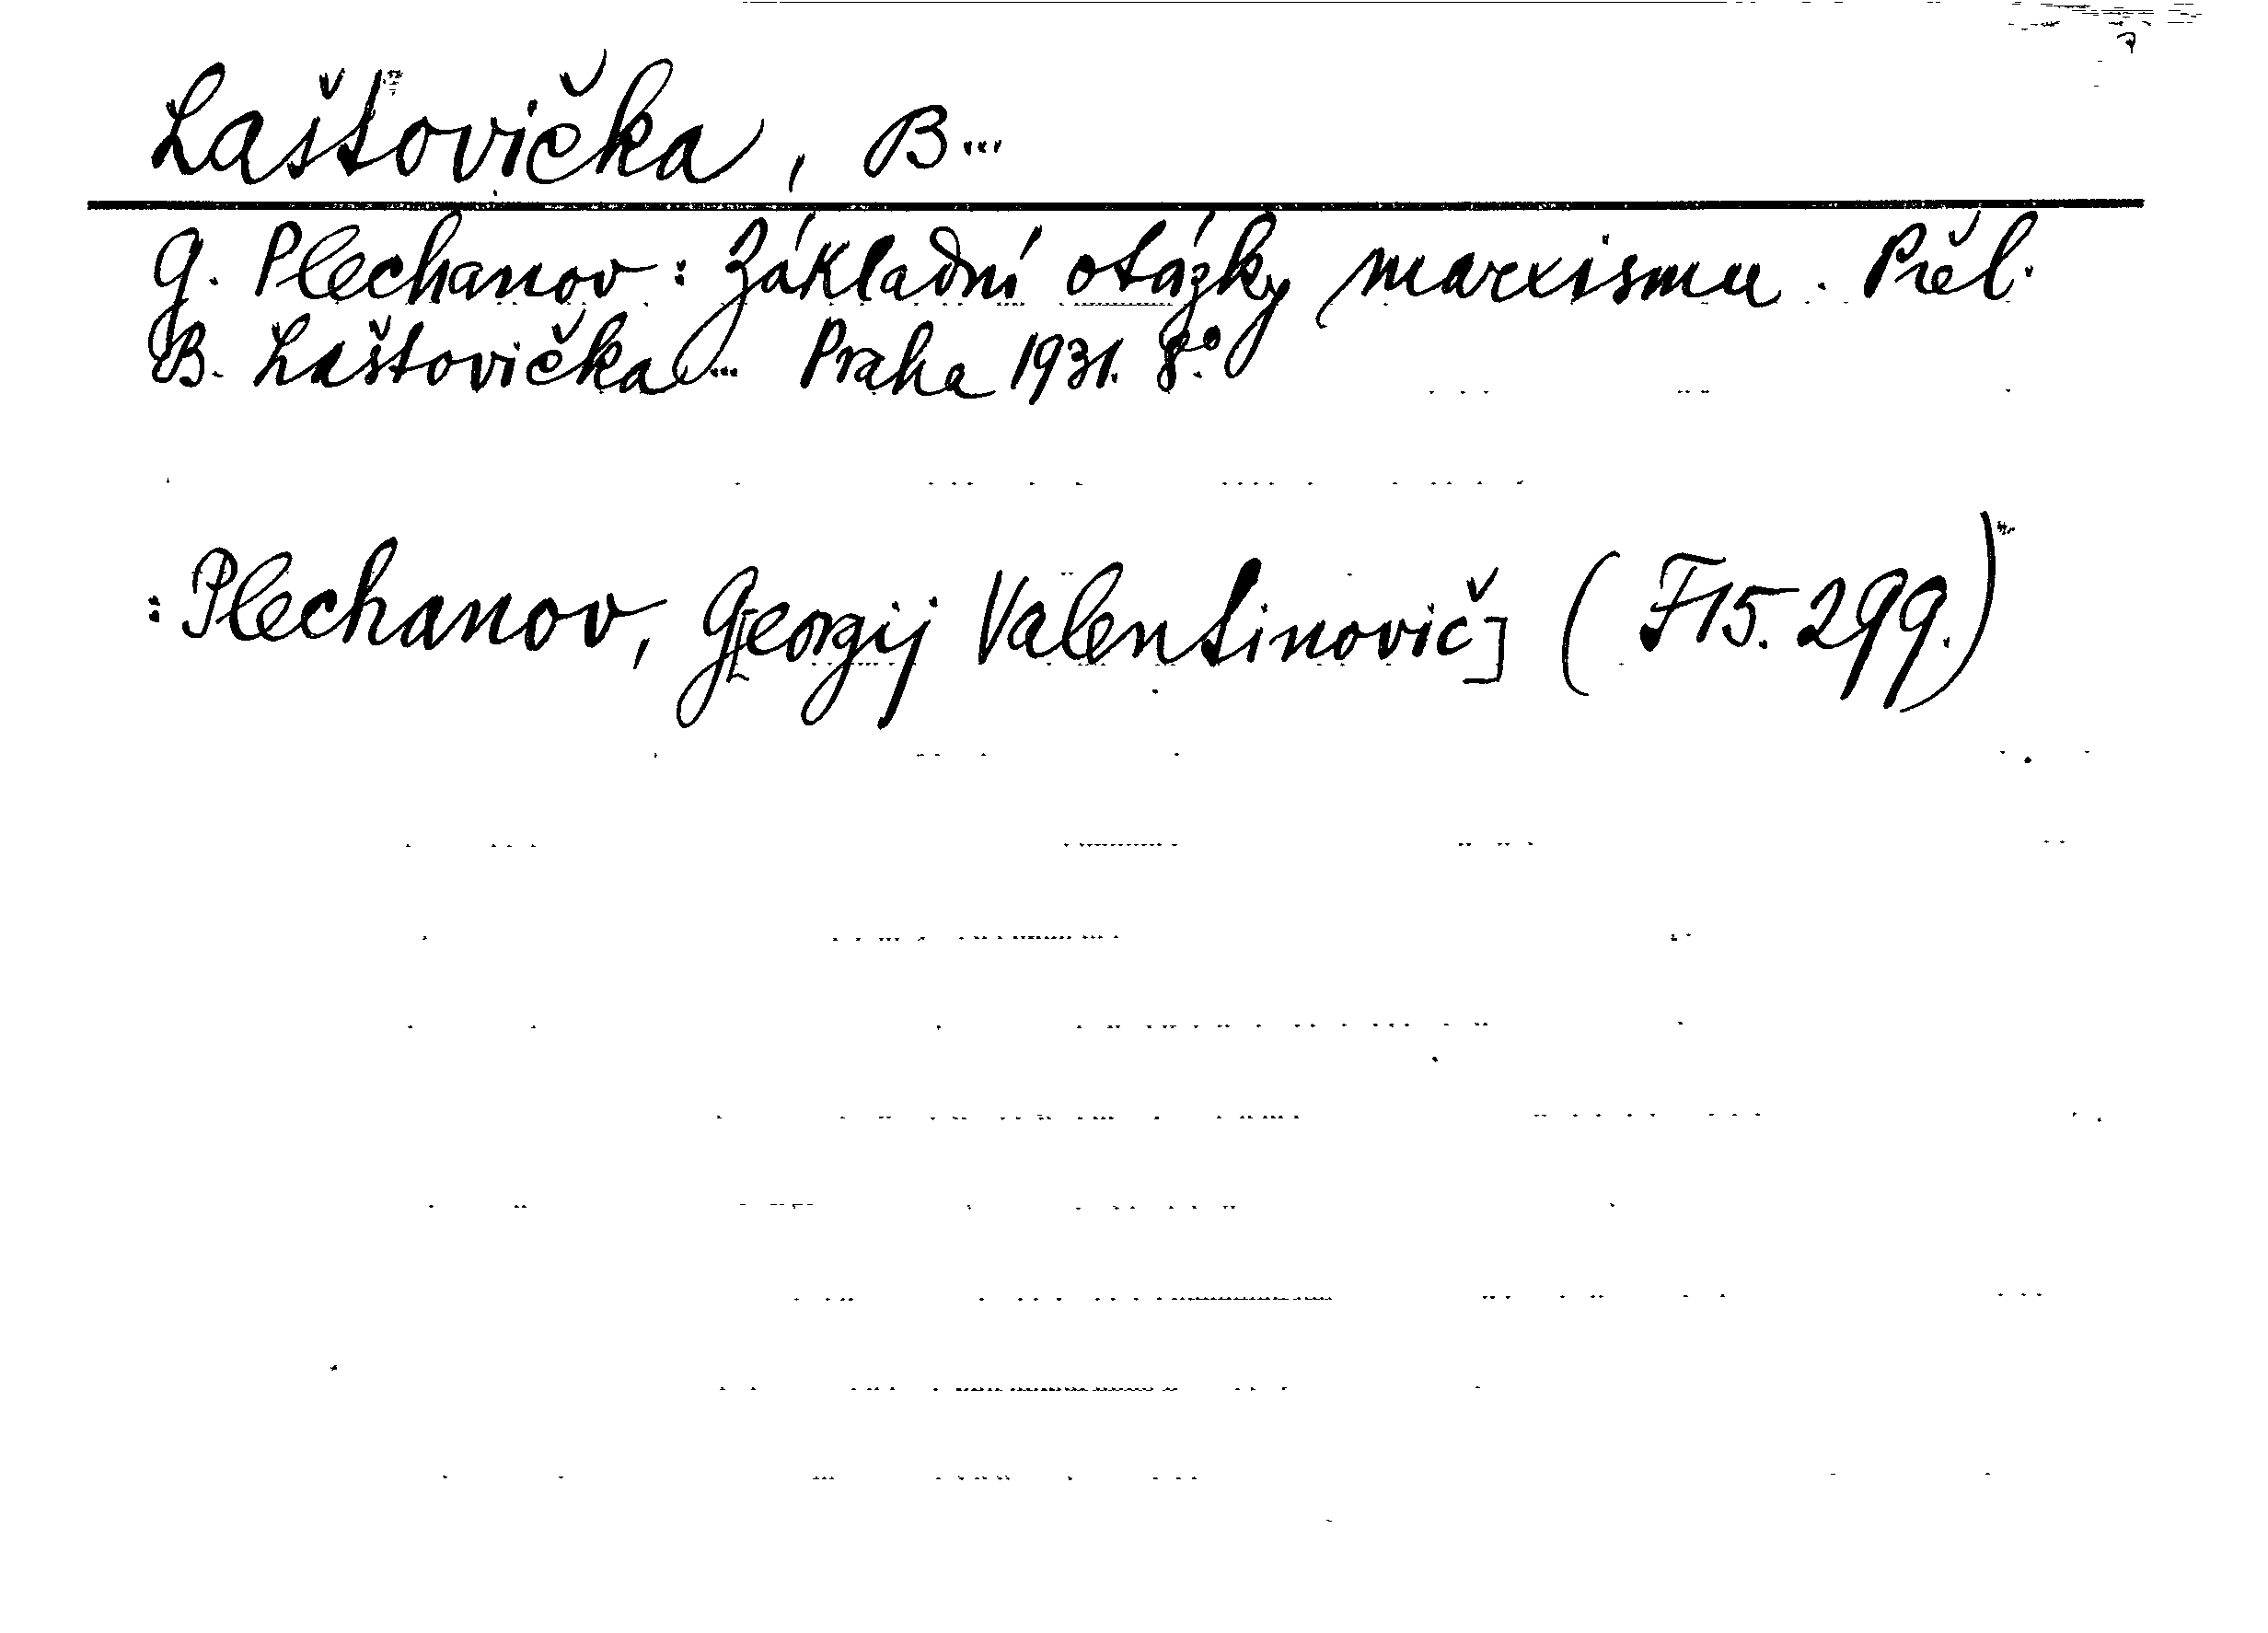 Laštovička, B...
G. Plechanov: Základní otázky marxismu. Přel.
B. Laštovička... Praha 1931. 8.°
: Plechanov, G[eorgij Valentinovič] (F15.299.)